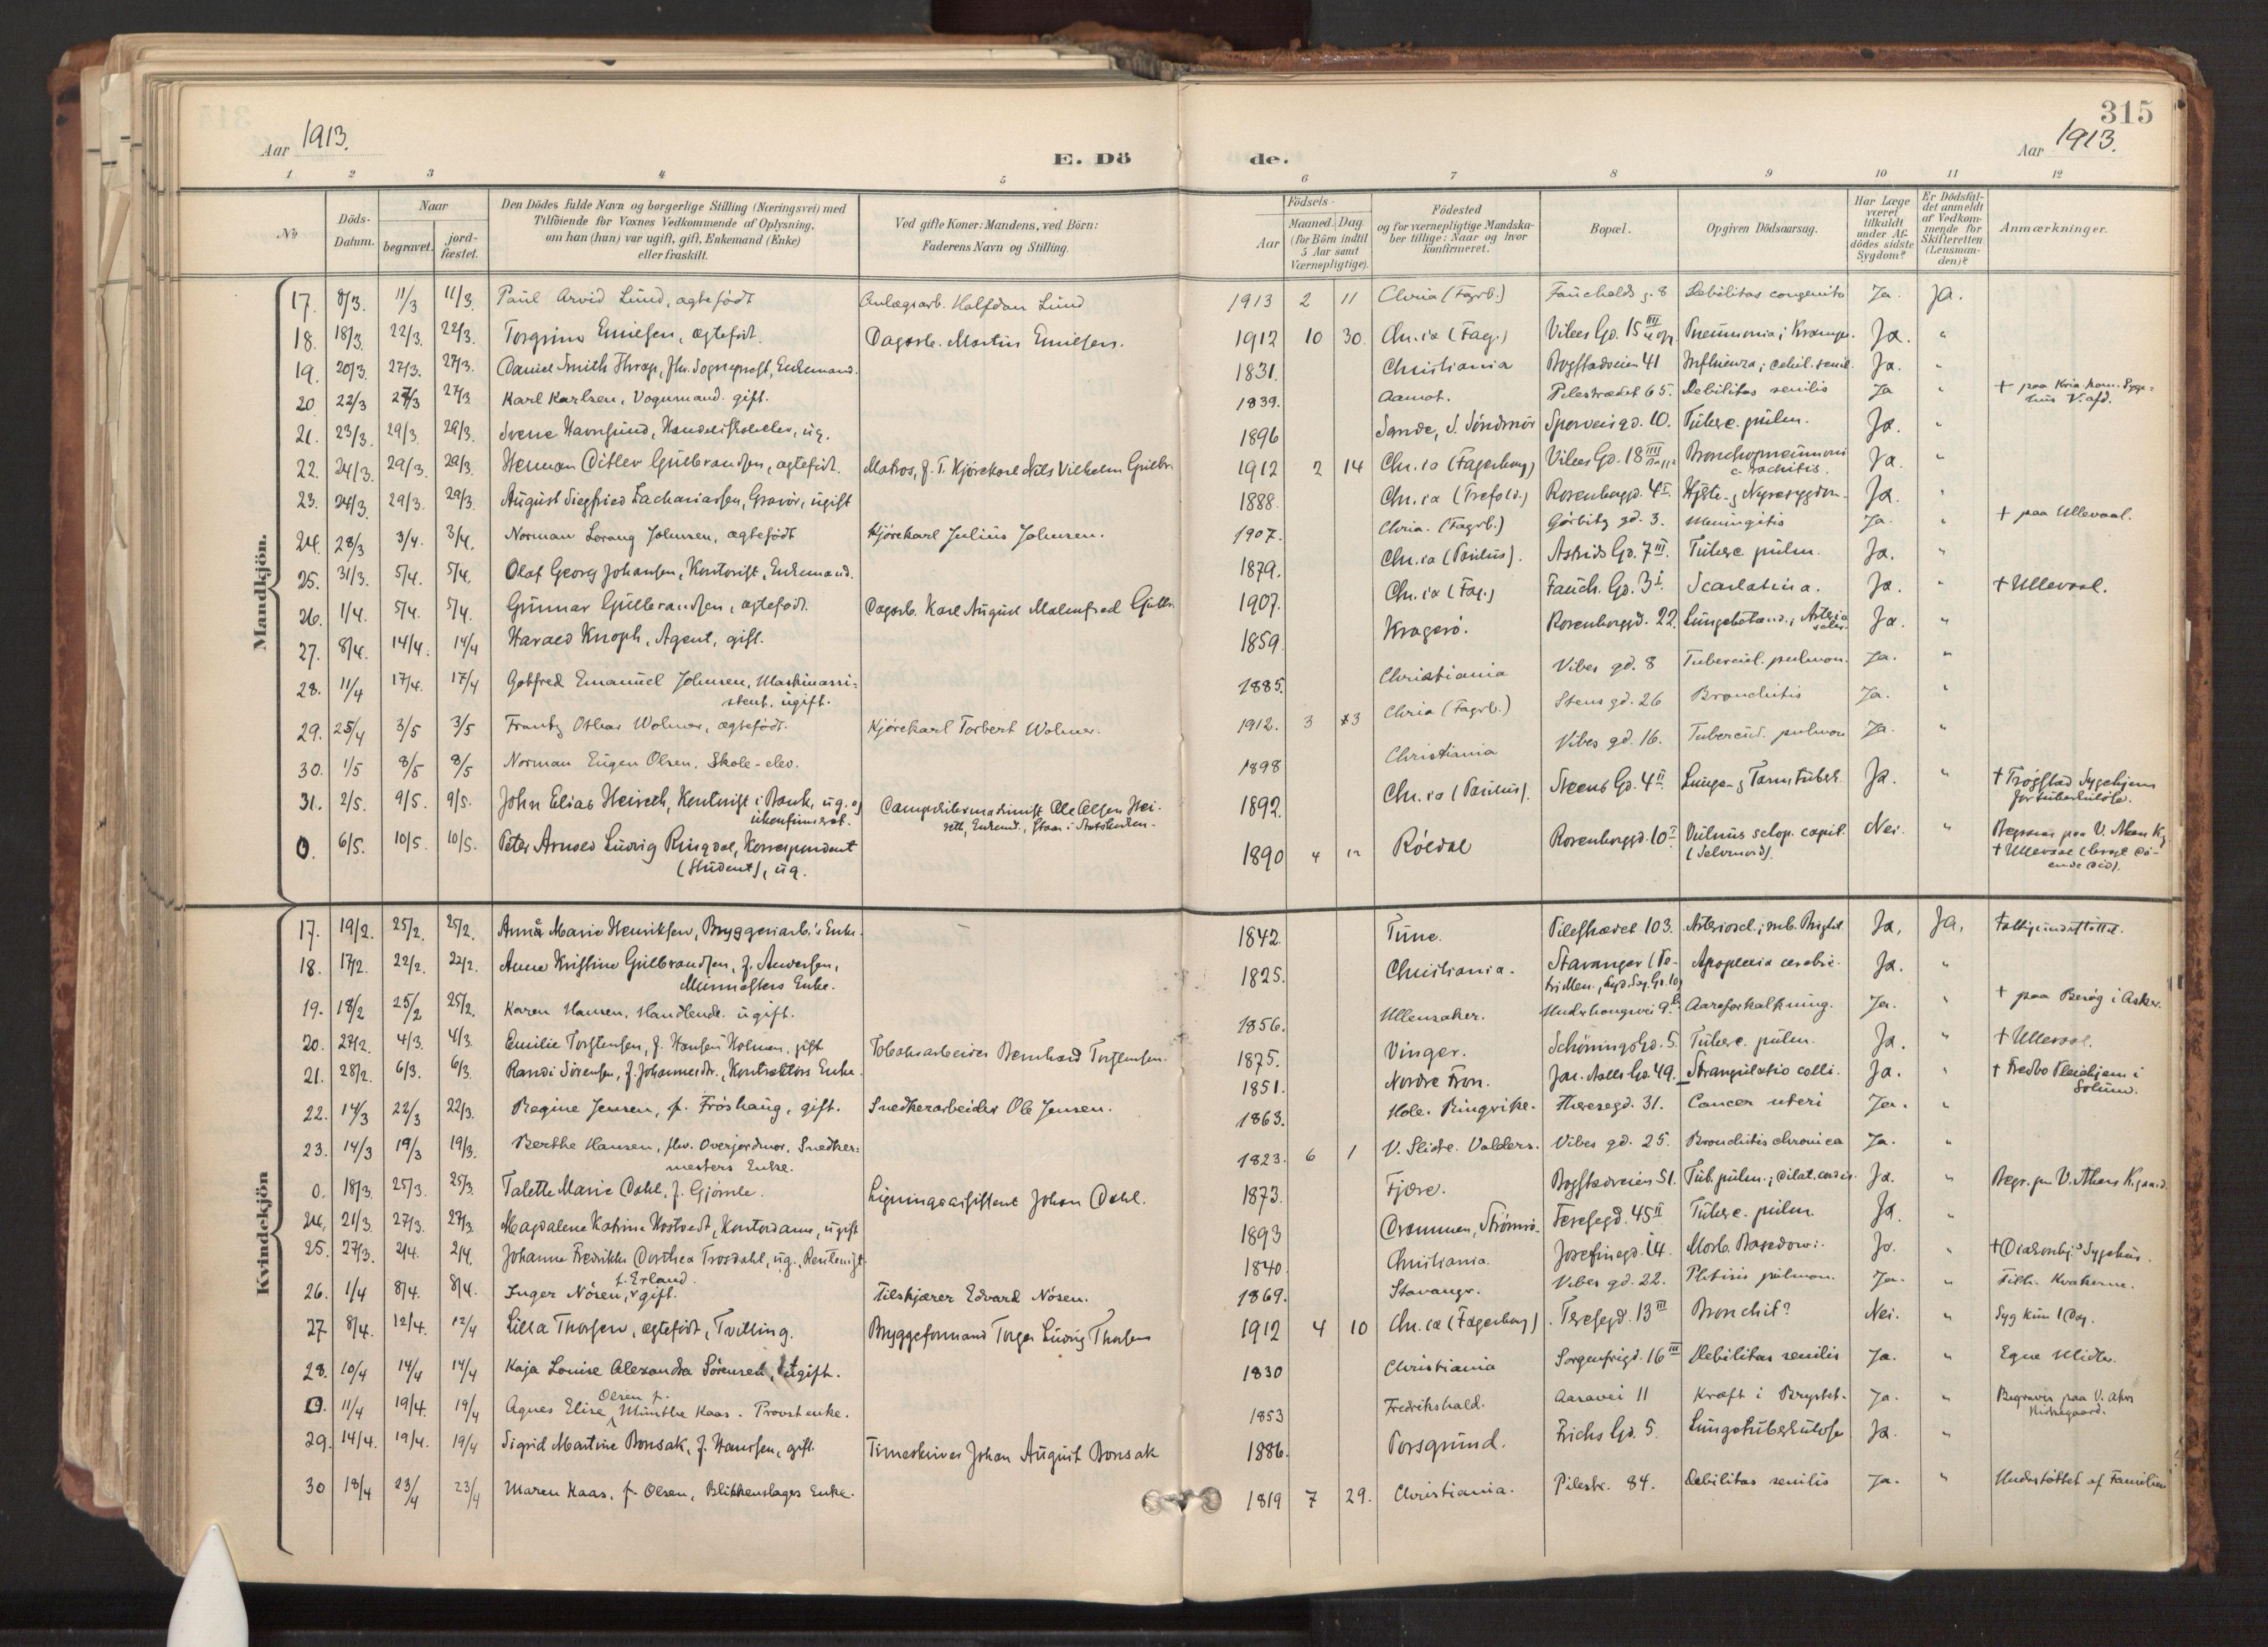 315
Aar 1913.
E. Dö de.
Aar 1913.
1 2 3 4 5 6 7 8 9 10 11 12
No
Döds-Datum.
Naar
begravet.
jord-fæstet.
Den Dödes fulde Navn og borgerlige Stilling (Næringsvei) med
Tilföiende for Voxnes Vedkommende af Oplysning,
om han (hun) var ugift, gift, Enkemand (Enke)
eller fraskilt.
Ved gifte Koner: Mandens, ved Börn:
Faderens Navn og Stilling.
Födsels-
Aar
Maaned. Dag
(for Börn indtil
5 Aar samt
Værnepligtige).
Födested
og for værnepligtige Mandska-
ber tillige: Naar og hvor
konfirmeret.
Bopæl.
Opgiven Dödsaarsag.
Har Læge
været
tilkaldt
under Af-
dödes sidste
Sygdom?
Er Dödsfal-
det anmeldt
af Vedkom-
mende for
Skifteretten
(Lensman-
den)?
Anmærkninger.
Mandkjön.
17. 8/3. 11/3 11/3. Paul Arvid Lund, ægtefödt Anlægsarb. Halfdan Lund 1913 2 11 Chria (Fagrb.) Fauchalds g. 8 Debilitas congenita Ja. Ja.
18. 18/3. 22/3. 22/3. Torgrim Emilsen, ægtefödt. Dagarb. Martin Emilsen. 1912 10 30. Chr.ia (Fag.) Vibes Gd. 15 III Pneumonia; Krampe. Ja. "
19. 20/3. 27/3. 27/3. Daniel Smith Thrap, fhv. Sogneprest, Enkemand. 1831. Christiania Bogstadveien 41 Influenza; debil. senil. Ja. "
20 22/3 27/3 27/3. Karl Karlsen, Vognmand. gift. 1839. Aamot. Pilestrædet 65. Debilitas senilis Ja " † paa Kria. kom. Syge-
hus V. afd.
21. 23/3. 29/3. 29/3. Svene Havnsund, Handelsskoleelev, ug. 1896 Sande, S. Söndmör Sporveisgd. 10. Tuberc. pulm. Ja. "
22. 24/3. 29/3. 29/3. Herman Ditlev Gulbrandsen, ægtefödt. Matros, f. T. Kjörekarl Nils Vilhelm Gulbr. 1912 2 14 Chr.ia (Fagerborg) Vibes Gd. 18 III Bronchopneumoni
c. rachitis. Ja. "
23. 24/3. 29/3. 29/3. August Siegfried Zachariassen, Gravör, ugift 1888. Chr.ia (Trefold.) Rosenborggd. 4 I. Hjerte- og Nyresygdom. Ja. "
24. 28/3 3/4. 3/4. Norman Lorang Johnsen, ægtefödt Kjörekarl Julius Johnsen. 1907. Chria. (Fagrb.) Görbitz gd. 3. Meningitis Ja. " † paa Ullevaal.
25. 31/3. 5/4. 5/4. Olaf Georg Johansen, Kontorist, Enkemand. 1879. Chr.ia (Paulus). Astrids Gd. 7 III. Tuberc. pulm. Ja. "
26. 1/4. 5/4. 5/4. Gunnar Gulbrandsen, ægtefödt. Dagarb. Karl August Malmfred Gulbr. 1907. Chr.ia (Fag.) Fauch. Gd. 3 I Scarlatina. Ja. " † Ullevaal.
27. 8/4. 14/4. 14/4 Harald Knoph, Agent, gift. 1859. Kragerö. Rosenborggd. 22. Lungebetænd.; Arterio
scler. Ja. "
28. 11/4 17/4. 17/4 Gotfred Emanuel Johnsen, Maskinassi-
stent. ugift. 1885. Christiania Vibes gd. 8 Tubercul. pulmon. Ja. "
29. 25/4 3/5 3/5 Frantz Oskar Wolmer, ægtefödt. Kjörekarl Torbert Wolmer. 1912. 3 23 Chria (Fagrb.) Stens gd. 26 Bronchitis Ja. "
30. 1/5 8/5 8/5 Norman Eugen Olsen, Skole-elev. 1898 Christiania Vibes gd. 16. Tubercul. pulmon Ja. "
31. 2/5. 9/5. 9/5. John Elias Heireth, Kontorist i Bank, ug. og
ukonfirmeret. Ole Olsen Hei-
reth, Enkemd. 1892. Chr.ia (Paulus). Steens Gd. 4 II Lunge- og Tarmtuberk. Ja. " † Trögstad Sygehjem
for tuberkulöse.
0. 6/5. 10/5. 10/5. Peter Arnold Ludvig Ringdal, Korrespondent
(Student), ug. 1890 4 12 Röldal Rosenborggd. 10 I Vulnus sclop. capit.
(Selvmord). Nei. " Begraves paa V. Akers Kg
† Ullevaal (bragt dö-
ende did).
Kvindekjön
17. 19/2. 25/2. 25/2. Anna Marie Henriksen, Bryggeriarb.'s Enke. 1842. Tune. Pilestrædet 103. Arterioscl.; mb. Brightii Ja. Ja. Fattigunderstöttet.
18. 17/2. 22/2. 22/2. Anne Kristine Gulbrandsen, f. Andersen,
Murmesters Enke. 1825. Christiania. Stavanger Apoplexia cerebri. Ja. "
19. 18/2 25/2 25/2. Karen Hansen, Handlende. ugift. 1856. Ullensaker. Underhaugsvei 9 b. Aareforkalkning. Ja. " † paa Berög i Asker.
20. 27/2. 4/3. 4/3. Emilie Torstensen, f. Hansen Holmen, gift Tobaksarbeider Bernhard Torstensen. 1875. Vinger. Schönings Gd. 5. Tuberc. pulm. Ja. " † Ullevaal.
21. 28/2. 6/3. 6/3. Randi Sörensen, f. Johannesdr., Kontraktörs Enke. 1851. Nordre Fron. Jac. Aalls Gd. 49. Strangulatio colli. Ja. " † Fredbo Pleiehjem i
Solum.
22. 14/3 22/3 22/3. Regine Jensen, f. Fröshaug, gift. Snedkerarbeider Ole Jensen. 1863. Hole. Ringrike. Theresegd. 31. Cancer uteri Ja. "
23. 14/3 19/3 19/3. Berthe Hansen, fhv. Overjordmor, Snedker-
mesters Enke. 1823. 6 1 V. Slidre. Valders. Vibes gd. 25. Bronchitis chronica Ja. "
0. 18/3. 25/3. 25/3. Talette Marie Dahl, f. Gjömle. Ligningsassistent Johan Dahl. 1873. Fjære. Bogstadveien 51. Tub. pulm.; dilat. cordis. Ja. " Begr. paa V. Akers K.gaard.
24. 21/3. 27/3. 27/3. Magdalene Katrine Hostvedt, Kontordame, ugift 1893 Drammen, Strömsö. Teresegd. 45 II Tuberc. pulm. Ja. "
25. 27/3. 2/4. 2/4. Johanne Fredrikke Dorthea Trosdahl, ug., Rentenist 1840. Christiania. Josefinegd. 14. Morb. Basedowi. Ja. " † Diakonhj.s Sygehus.
26. 1/4 8/4. 8/4. Inger Nösen, f. Erland. gift. Tilskjærer Edvard Nösen. 1869. Stavanger. Vibes gd. 22. Phtisis pulmon. Ja. " Tilh. Kvækerne.
27 8/4. 12/4. 12/4 Lilla Thorsen, ægtefödt, Tvilling. Bryggeformand Torger Ludvig Thorsen 1912 4 10 Chr.ia (Fagerborg). Teresegd. 13 III Bronchit? Nei. " Syg kun 1 Dag.
28. 10/4 14/4 14/4 Kaja Louise Alexandra Sörensen, ugift. 1830 Christiania Sorgenfrigd. 16 III Debilitas senilis Ja. " Egne Midler.
0. 11/4 19/4. 19/4 Agnes Elise Olsen f. Münthe Kaas. Provstenke. 1853 Fredrikshald. Aasavei 11 Kræft i Brystet. Ja. " Begraves paa V. Akers
Kirkegaard.
29. 14/4. 19/4. 19/4 Sigrid Martine Bonsak, f. Hanssen, gift. Timeskriver Johan August Bonsak 1886. Porsgrund. Frichs Gd. 5. Lungetuberkulose Ja. "
30 18/4 23/4 23/4 Maren Kaas, f. Olsen, Blikkenslagers Enke. 1819 7 29. Christiania. Pilestr. 84. Debilitas senilis Ja. " Understöttet af Familien